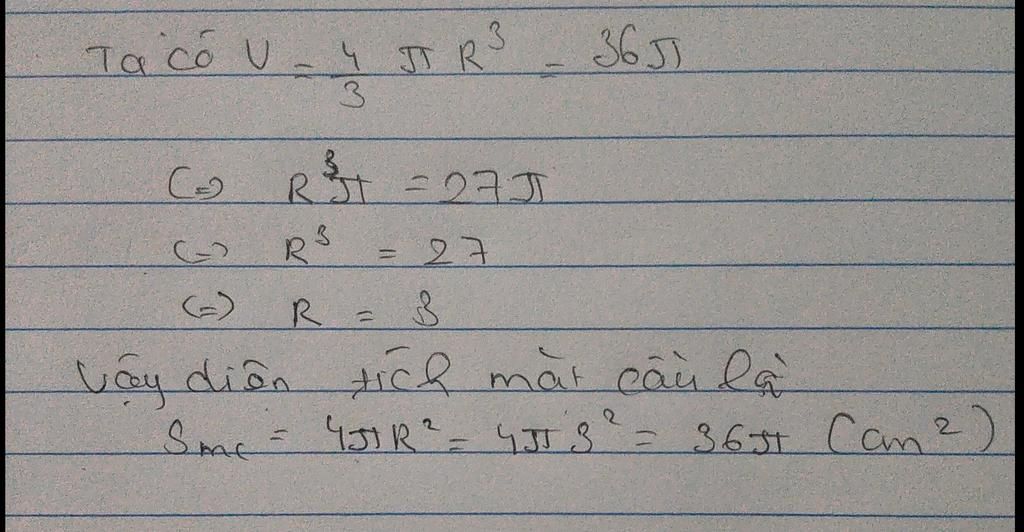 Ta có V = 4/3 π R³ = 36π
(=) R³π = 27π
(=) R³ = 27
(=) R = 3
Vậy diện tích mặt cầu là
Smc = 4πR² = 4π3² = 36π (cm²)